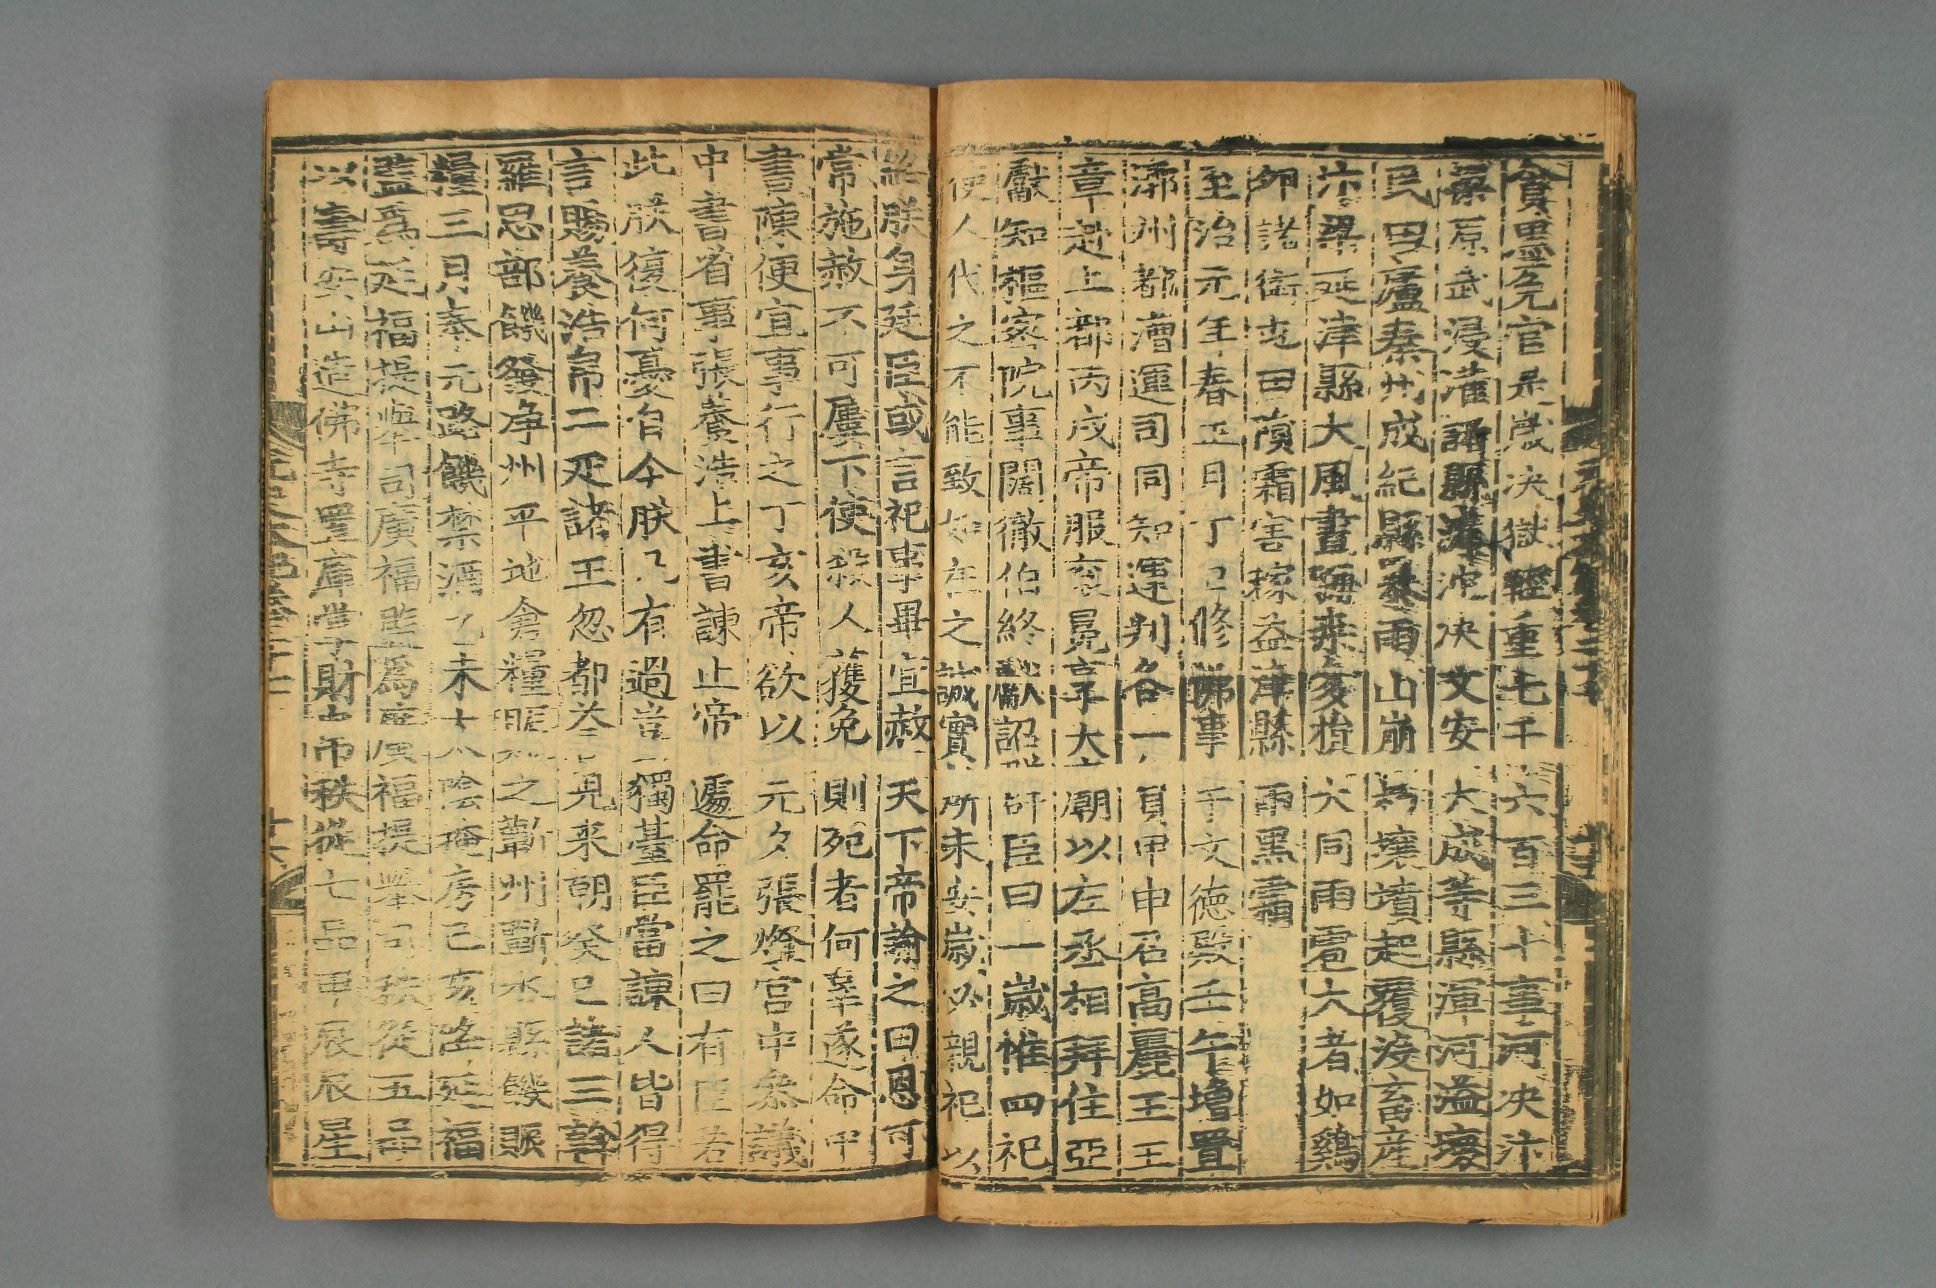 貪墨宄官是歲決獄輕重七千六百三十事河決汴
梁原武浸灌諸縣滹沱決文安大成等縣渾河溢壞
民田廬秦州成紀縣暴雨山崩朽壤墳起覆沒畜產
汴梁延津縣大風晝晦桑多損大同雨雹大者如鷄
卵諸衛屯田隕霜害稼益津縣雨黑霜
至治元年春正月丁巳修佛事于文德殿壬午增置
漷州都漕運司同知運判各一員甲申召高麗王王
章赴上都丙戌帝服袞冕享大廟以左丞相拜住亞
獻知樞密院事闊徹伯終獻詔群臣曰一歲惟四祀
使人代之不能致如在之誠實所未安歲必親祀以
終朕身廷臣或言祀事畢宜赦天下帝諭之曰恩可
常施赦不可屢下使殺人獲免則死者何辜遂命中
書陳便宜事行之丁亥帝欲以元夕張燈宮中參議
中書省事張養浩上書諫止帝遽命罷之曰有臣若
此朕復何憂自今朕凡有過豈獨臺臣當諫人皆得
言賜養浩帛二疋諸王忽都答兒來朝癸巳諸王斡
羅思部饑發净州平地倉糧賑之蘄州蘄水縣饑賑
糧三月奉元路饑禁酒己未大陰掩房己亥降延福
監爲延福提舉司廣福監爲廣福提舉司秩從五品
以壽安山造佛寺置庫掌財帛秩從七品甲辰辰星